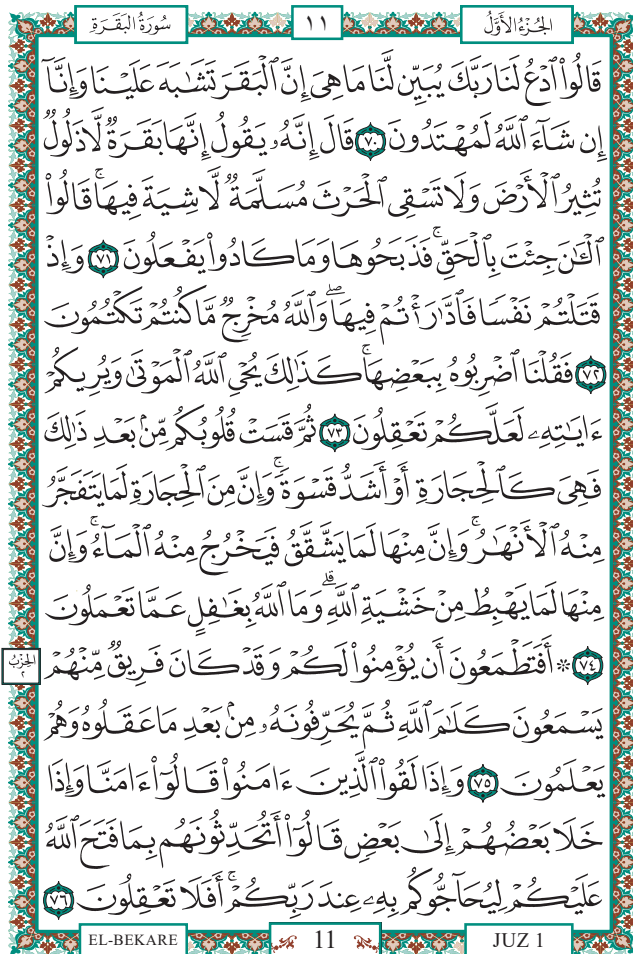 سُورَةُ البَقَرَةِ
١١
الجُزْءُ الأَوَّلُ
قَالُوا۟ ٱدْعُ لَنَا رَبَّكَ يُبَيِّن لَّنَا مَا هِىَ إِنَّ ٱلْبَقَرَ تَشَـٰبَهَ عَلَيْنَا وَإِنَّآ
إِن شَآءَ ٱللَّهُ لَمُهْتَدُونَ ٧٠ قَالَ إِنَّهُۥ يَقُولُ إِنَّهَا بَقَرَةٌ لَّا ذَلُولٌ
تُثِيرُ ٱلْأَرْضَ وَلَا تَسْقِى ٱلْحَرْثَ مُسَلَّمَةٌ لَّا شِيَةَ فِيهَا ۚ قَالُوا۟
ٱلْـَٔـٰنَ جِئْتَ بِٱلْحَقِّ ۚ فَذَبَحُوهَا وَمَا كَادُوا۟ يَفْعَلُونَ ٧١ وَإِذْ
قَتَلْتُمْ نَفْسًا فَٱدَّٰرَْٰٔتُمْ فِيهَا ۖ وَٱللَّهُ مُخْرِجٌ مَّا كُنتُمْ تَكْتُمُونَ
٧٢ فَقُلْنَا ٱضْرِبُوهُ بِبَعْضِهَا ۚ كَذَٰلِكَ يُحْىِ ٱللَّهُ ٱلْمَوْتَىٰ وَيُرِيكُمْ
ءَايَـٰتِهِۦ لَعَلَّكُمْ تَعْقِلُونَ ٧٣ ثُمَّ قَسَتْ قُلُوبُكُم مِّنۢ بَعْدِ ذَٰلِكَ
فَهِىَ كَٱلْحِجَارَةِ أَوْ أَشَدُّ قَسْوَةً ۚ وَإِنَّ مِنَ ٱلْحِجَارَةِ لَمَا يَتَفَجَّرُ
مِنْهُ ٱلْأَنْهَـٰرُ ۚ وَإِنَّ مِنْهَا لَمَا يَشَّقَّقُ فَيَخْرُجُ مِنْهُ ٱلْمَآءُ ۚ وَإِنَّ
مِنْهَا لَمَا يَهْبِطُ مِنْ خَشْيَةِ ٱللَّهِ ۗ وَمَا ٱللَّهُ بِغَـٰفِلٍ عَمَّا تَعْمَلُونَ
٧٤ ۞ أَفَتَطْمَعُونَ أَن يُؤْمِنُوا۟ لَكُمْ وَقَدْ كَانَ فَرِيقٌ مِّنْهُمْ
الحِزْبُ
٢
يَسْمَعُونَ كَلَـٰمَ ٱللَّهِ ثُمَّ يُحَرِّفُونَهُۥ مِنۢ بَعْدِ مَا عَقَلُوهُ وَهُمْ
يَعْلَمُونَ ٧٥ وَإِذَا لَقُوا۟ ٱلَّذِينَ ءَامَنُوا۟ قَالُوٓا۟ ءَامَنَّا وَإِذَا
خَلَا بَعْضُهُمْ إِلَىٰ بَعْضٍ قَالُوٓا۟ أَتُحَدِّثُونَهُم بِمَا فَتَحَ ٱللَّهُ
عَلَيْكُمْ لِيُحَآجُّوكُم بِهِۦ عِندَ رَبِّكُمْ ۚ أَفَلَا تَعْقِلُونَ ٧٦
EL-BEKARE
11
JUZ 1